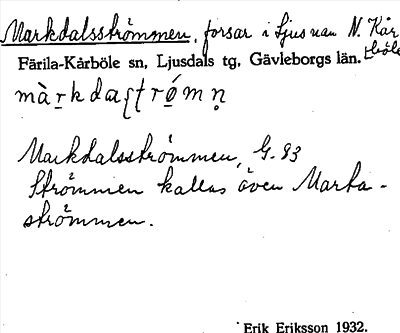 Markdalsströmmen, forsar i Ljusnan N. Kår-
böle
Färila-Kårböle sn, Ljusdals tg, Gävleborgs län.
Markdalsströmmen, G. 93
Strömmen kallas även Marka-
strömmen.
Erik Eriksson 1932.